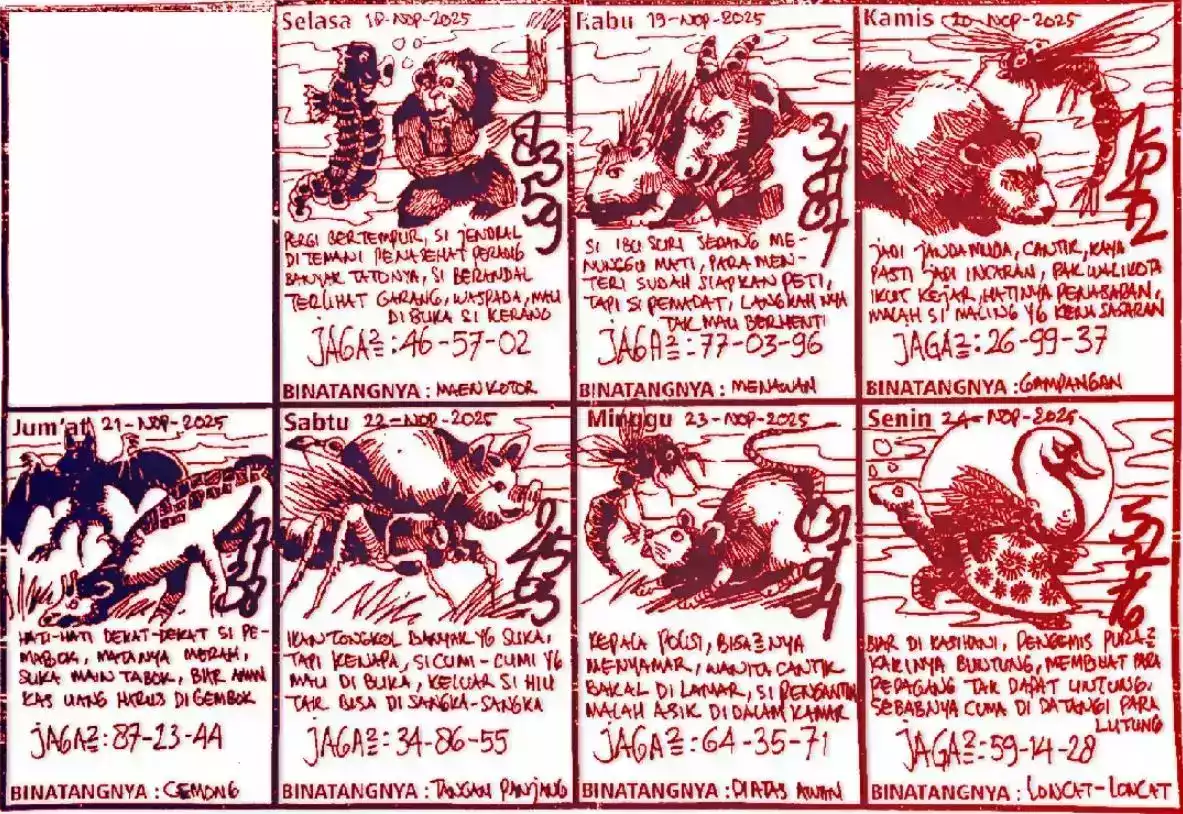 Selasa 18-NOP-2025
8
3
5
9
PERGI BERTEMPUR, SI JENDRAL
DITEMANI PENASEHAT PERANG
BANYAK TATONYA, SI BERANDAL
TERLIHAT GARANG, WASPADA, MAU
DIBUKA SI KERANG
JAGA2 : 46-57-02
BINATANGNYA : MAEN KOTOR
Rabu 19-NOP-2025
3
4
SI IBU SURI SEDANG ME-
NUNGGU MATI, PARA MEN-
TERI SUDAH SIAPKAN PETI,
TAPI SI PEMADAT, LANGKAHNYA
TAK MAU BERHENTI
JAGA2 : 77-03-96
BINATANGNYA : MENAWAN
Kamis 20-NOP-2025
1
5
4
2
JADI JANDA MUDA, CANTIK, KAYA
PASTI JADI INCARAN, PAK WALIKOTA
IKUT KEJAR, HATINYA PENASARAN,
MALAH SI MALING YG KENA SASARAN
JAGA2 : 26-99-37
BINATANGNYA : GAMPANGAN
Jum'at 21-NOP-2025
HATI-HATI DEKAT-DEKAT SI PE-
MABOK, MATANYA MERAH,
SUKA MAIN TABOK, BIAR AMAN
KAS UANG HARUS DI GEMBOK
JAGA2 : 87-23-44
BINATANGNYA : CEMONG
Sabtu 22-NOP-2025
IKAN TONGKOL BANYAK YG SUKA,
TAPI KENAPA, SI CUMI-CUMI YG
MAU DI BUKA, KELUAR SI HIU
TAK BISA DI SANGKA-SANGKA
JAGA2 : 34-86-55
BINATANGNYA : TANGAN PANJANG
Minggu 23-NOP-2025
KEPALA POLISI, BISA2NYA
MENYAMAR, WANITA CANTIK
BAKAL DI LAMAR, SI PENGANTIN
MALAH ASIK DIDALAM KAMAR
JAGA2 : 64-35-71
BINATANGNYA : DIATAS AWAN
Senin 24-NOP-2025
5
2
7
6
BIAR DI KASIHANI, PENGEMIS PURA2
KAKINYA BUNTUNG, MEMBUAT PARA
PEDAGANG TAK DAPAT UNTUNG,
SEBABNYA CUMA DI DATANGI PARA
LUTUNG
JAGA2 : 59-14-28
BINATANGNYA : LONCAT-LONCAT